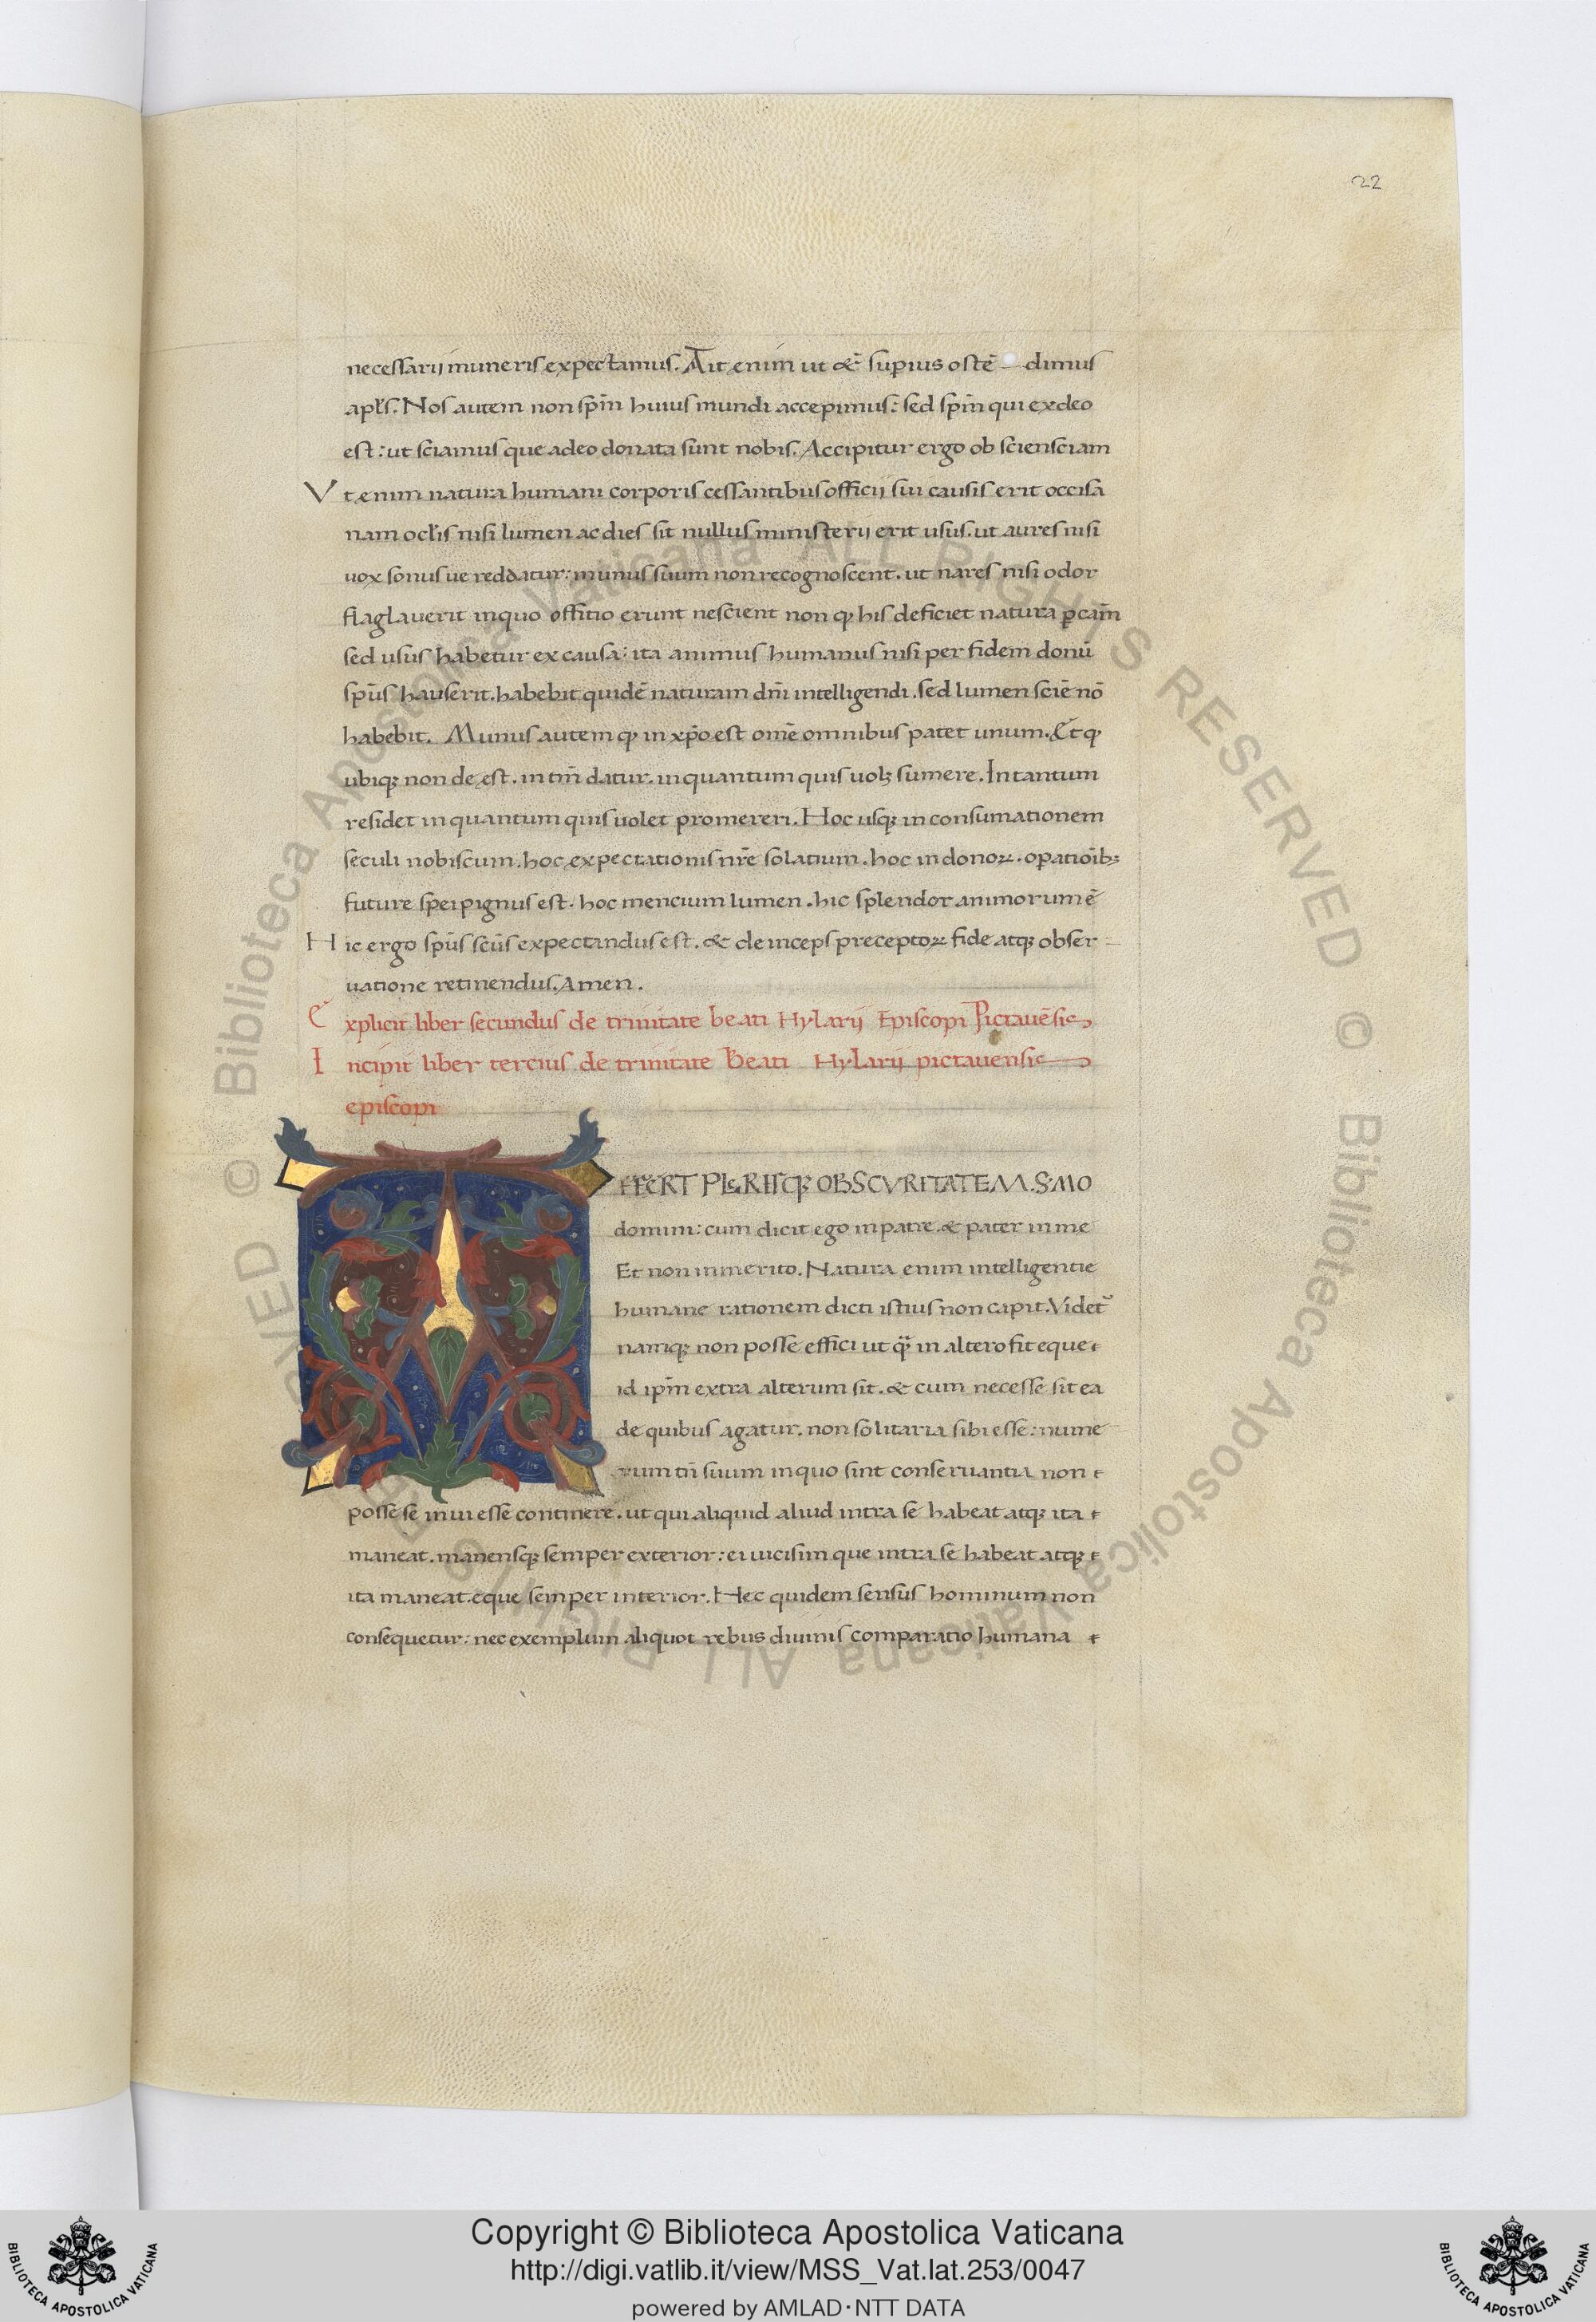 22
necessarij muneris expectamus. Ait enim ut & supius ostē dimus
apl̄s. Nos autem non spm̄ huius mundi accepimus: sed spm̄ qui exdeo
est: ut sciamus que adeo donata sunt nobis. Accipitur ergo ob sciensciam
Vt enim natura humani corporis cessantibus officij sui causis erit occisa
nam oclis nisi lumen ac dies sit nullus ministerij erit usus. ut aures nisi
uox sonus ue reddatur: munus suum non recognoscent. ut nares nisi odor
flaglauerit inquo offitio erunt nescient non ꝙ his deficiet natura ꝑ cam̄
sed usus habetur ex causa: ita animus humanus nisi per fidem donū
sp̄us hauserit. habebit quidē naturam dm̄ intelligendi. sed lumen sciē nō
habebit. Munus autem ꝙ in xp̄o est om̄e omnibus patet unum. Et ꝙ
ubiqꝫ non de est. in tm̄ datur. inquantum quis uolꝫ sumere. In tantum
residet inquantum quis uolet promereri. Hoc usqꝫ in consumationem
seculi nobiscum. hoc expectationis nr̄e solatium. hoc in donoꝝ. oꝑatioībꝫ
future spei pignus est. hoc mencium lumen. hic splendor animorum ē
Hic ergo sp̄us sc̄us expectandus est. & deinceps preceptoꝝ fide atqꝫ obser
uatione retinendus. Amen.
Explicit liber secundus de trinitate beati Hylarij Episcopi Pictauēsis
Incipit liber tercius de trinitate Beati Hylarij pictauensis
episcopi
AFFERT PLERISQꝫ OBSCVRITATEM. SMO
domini: cum dicit ego in patre. & pater in me
Et non inmerito. Natura enim intelligentie
humane rationem dicti istius non capit. Videt᷑
namqꝫ non posse effici ut q̄ in altero sit eque
id ipm̄ extra alterum sit. & cum necesse sit ea
de quibus agatur. non solitaria sibi esse: nume
rum tn̄ suum inquo sint conseruantia non
posse se inui esse continere. ut qui aliquid aliud intra se habeat atqꝫ ita
maneat. manensqꝫ semper exterior: ei uicisim que intra se habeat atqꝫ
ita maneat. eque semper interior. Hec quidem sensus hominum non
consequetur: nec exemplum aliquot rebus diuinis comparatio humana
Copyright © Biblioteca Apostolica Vaticana
http://digi.vatlib.it/view/MSS_Vat.lat.253/0047
powered by AMLAD·NTT DATA
BIBLIOTECA APOSTOLICA VATICANA
BIBLIOTECA APOSTOLICA VATICANA
© Biblioteca Apostolica Vaticana ALL RIGHTS RESERVED © Biblioteca Apostolica Vaticana ALL RIGHTS RESERVED